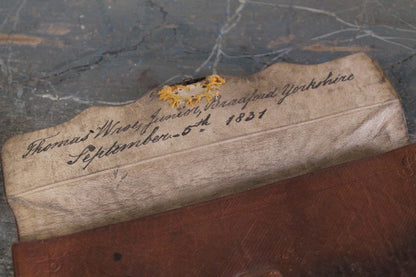 Thomas Wroe, Junior, Bradford Yorkshire
September 5th 1831